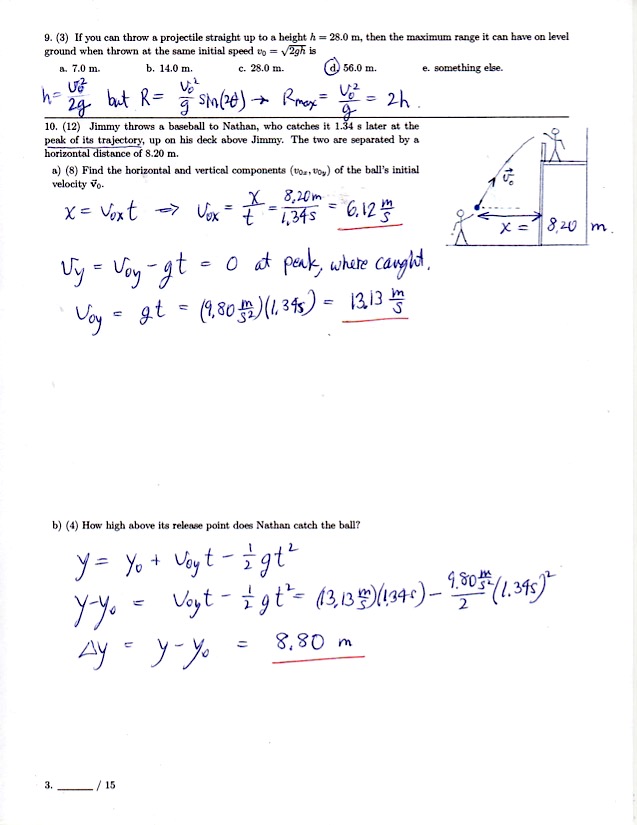 9. (3) If you can throw a projectile straight up to a height h = 28.0 m, then the maximum range it can have on level
ground when thrown at the same initial speed v₀ = √2gh is
a. 7.0 m. b. 14.0 m. c. 28.0 m. d. 56.0 m. e. something else.
h = v₀²/2g but R = v₀²/g sin(2θ) → Rmax = v₀²/g = 2h.
10. (12) Jimmy throws a baseball to Nathan, who catches it 1.34 s later at the
peak of its trajectory, up on his deck above Jimmy. The two are separated by a
horizontal distance of 8.20 m.
a) (8) Find the horizontal and vertical components (v₀ₓ, v₀y) of the ball's initial
velocity v⃗₀.
v⃗₀
x = 8,20 m.
x = v₀ₓt ⇒ v₀ₓ = x/t = 8,20m/1,34s = 6,12 m/s
vy = v₀y - gt = 0 at peak, where caught.
v₀y = gt = (9,80 m/s²)(1,34s) = 13,13 m/s
b) (4) How high above its release point does Nathan catch the ball?
y = y₀ + v₀yt - ½gt²
y-y₀ = v₀yt - ½gt² = (13,13 m/s)(1,34s) - 9,80 m/s²/2 (1.34s)²
Δy = y-y₀ = 8.80 m
3. ______ / 15